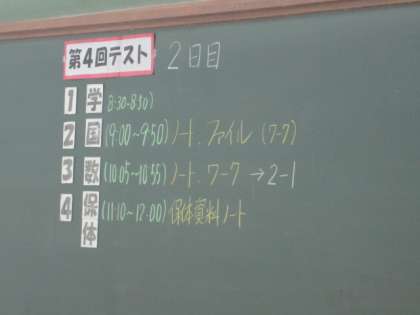 第4回テスト 2日目
1 学 8:30-8:50)
2 国 (9:00~9:50) ノート、ファイル (ワーク)
3 数 (10:05~10:55) ノート、ワーク → 2-1
4 保体 (11:10~12:00) 保体資料ノート